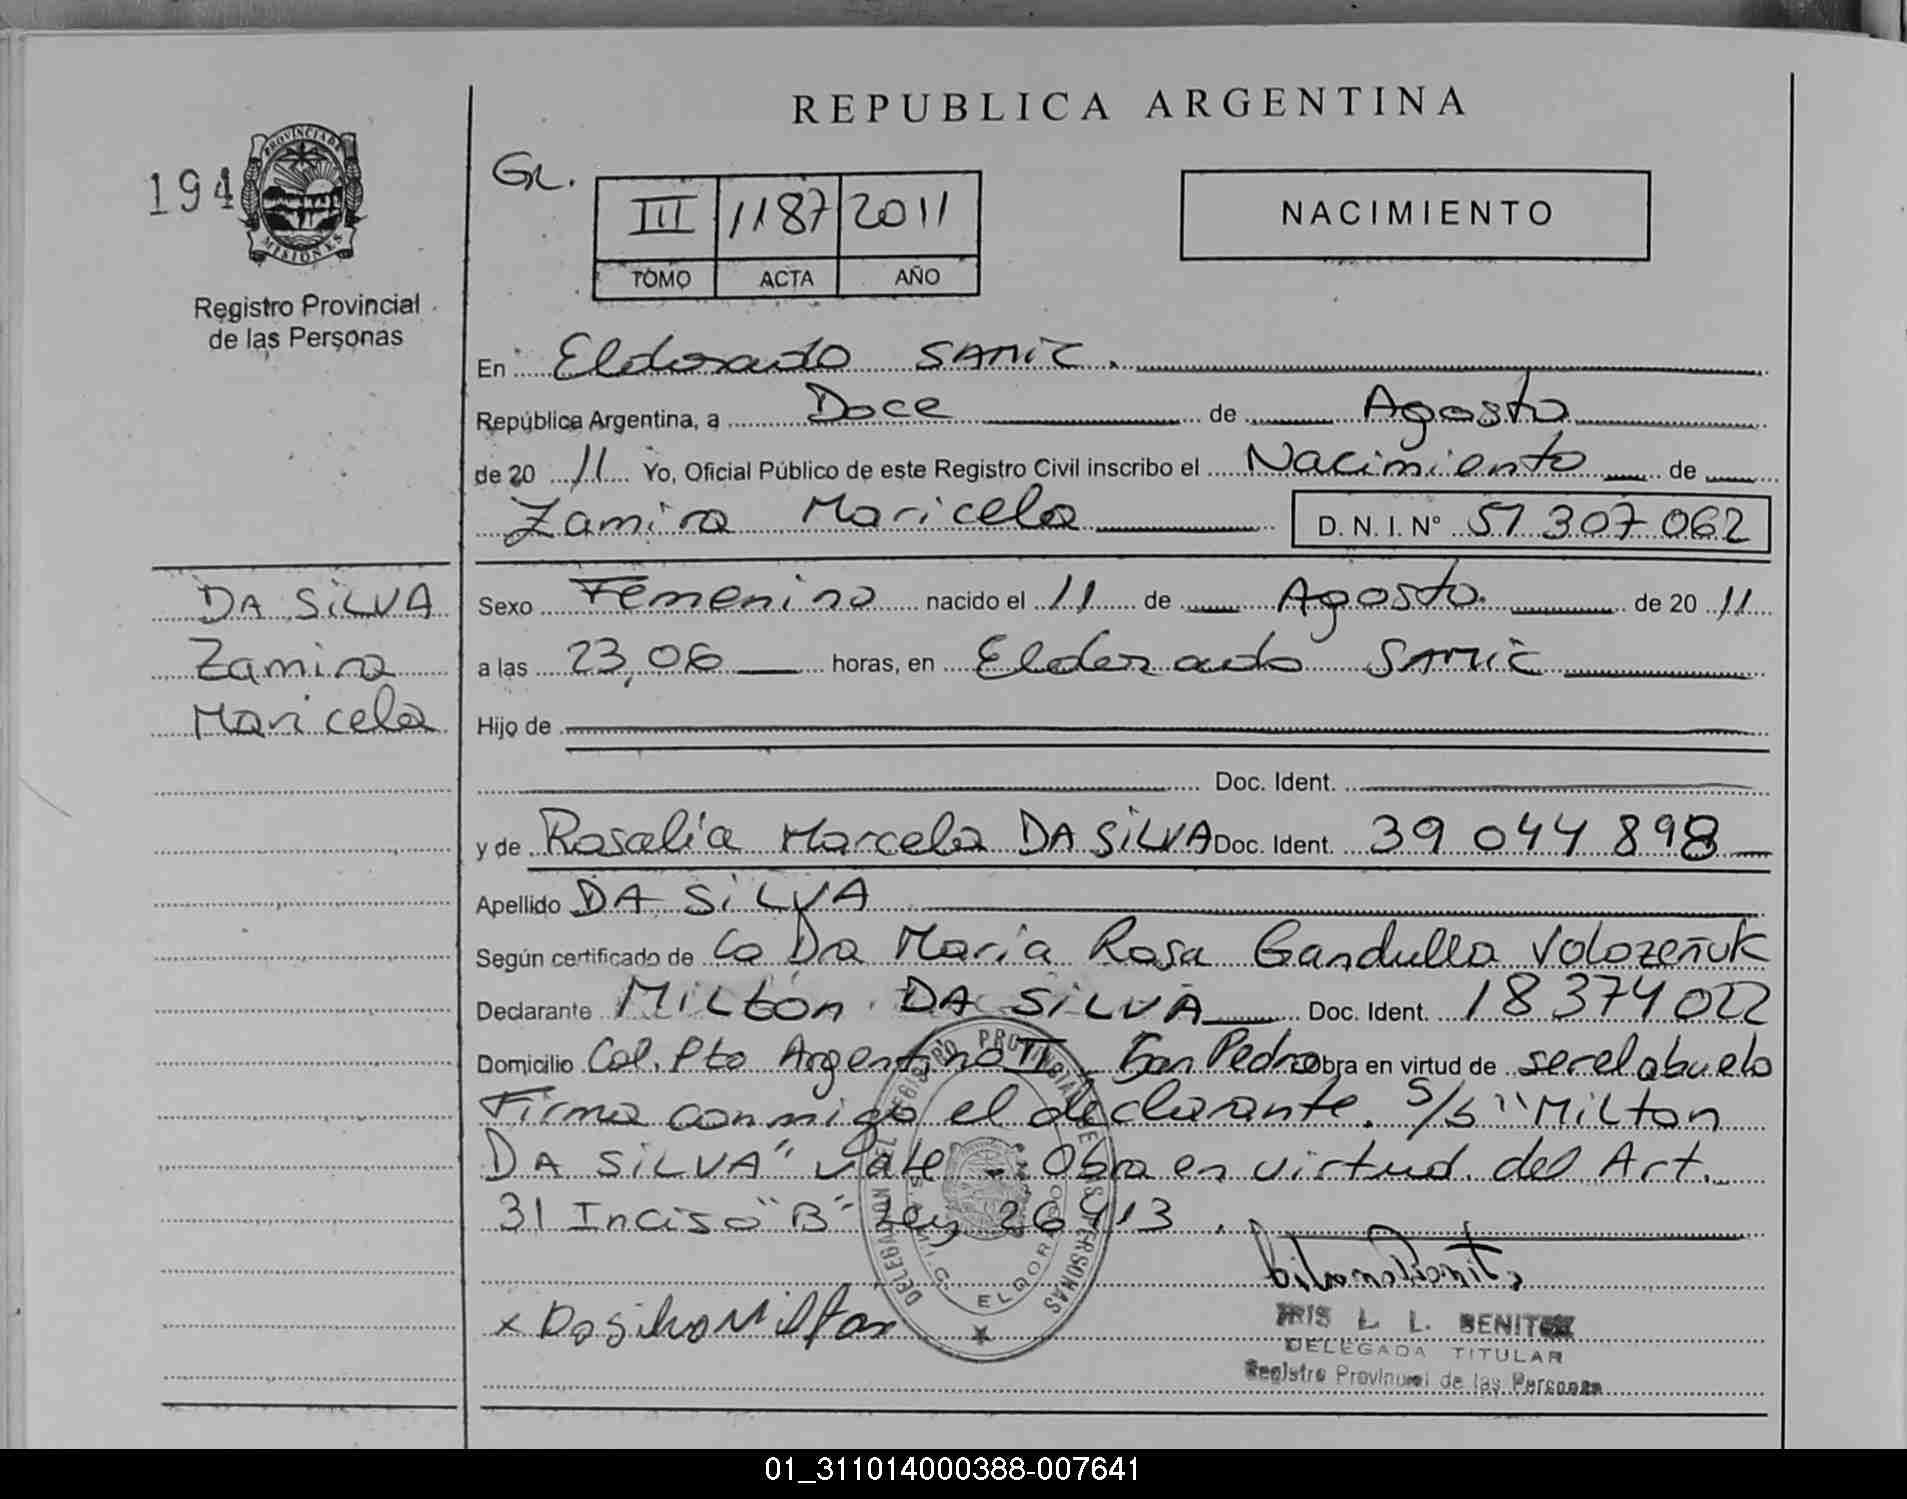 REPUBLICA ARGENTINA
194
PROVINCIA DE
MISIONES
Registro Provincial
de las Personas
III 1187 2011
TOMO ACTA AÑO
NACIMIENTO
En Eldorado SAMIC.
República Argentina, a Doce de Agosto
de 20 11 Yo, Oficial Público de este Registro Civil inscribo el Nacimiento de
Zamira Maricela D. N. I. N° 51 307 062
DA SiLVA
Zamira
Maricela
Sexo Femenino nacido el 11 de Agosto. de 20 11
a las 23,06 horas, en Eldorado SAMIC
Hijo de
Doc. Ident.
y de Rosalia Marcela DA SiLVA Doc. Ident. 39 044 898
Apellido DA SiLVA
Según certificado de La Dra Maria Rosa Gandulla Volozeñuk
Declarante MiLton DA SiLVA Doc. Ident. 18 374 022
Domicilio Col. Pto Argentino II San Pedro obra en virtud de ser el abuelo
Firma conmigo el declarante. S/b "MiLton
DA SiLVA" vale - Obra en virtud del Art.
31 Inciso "B" Ley 26413.
DELEGACION DEL REGISTRO PROVINCIAL DE LAS PERSONAS
S.A.M.I.C. ELDORADO
x Da silva Milton
IRIS L. L. BENITEZ
DELEGADA TITULAR
Registro Provincial de las Personas
01_311014000388-007641